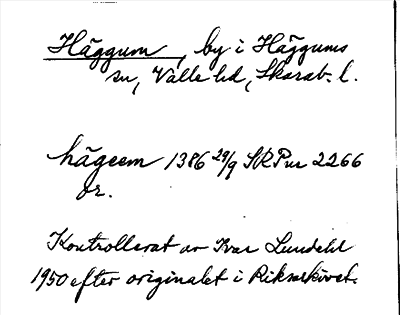 Häggum, by i Häggums
sn, Valle hd, Skarab. l.
hägeem 1386 29/9 SRP nr 2266
or.
Kontrollerat av Ivar Lundahl
1950 efter originalet i Riksarkivet.